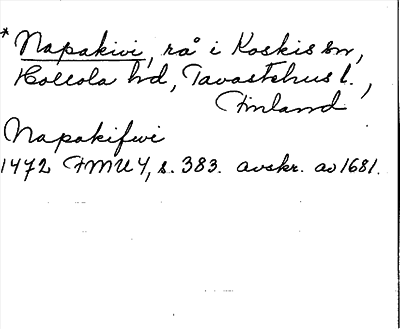 * Napakivi, rå i Koskis sn,
Hollola hd, Tavastehus l.,
Finland
Napakifwi
1472 FMU 4, s. 383. avskr. av 1681.